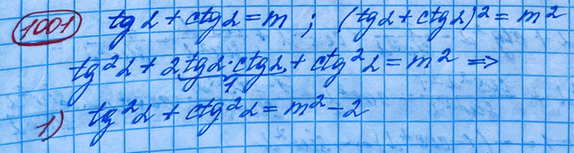 1001 tg α + ctg α = m ; (tg α + ctg α)² = m²
tg² α + 2 tg α · ctg α + ctg² α = m² ⇒
1
1) tg² α + ctg² α = m² - 2